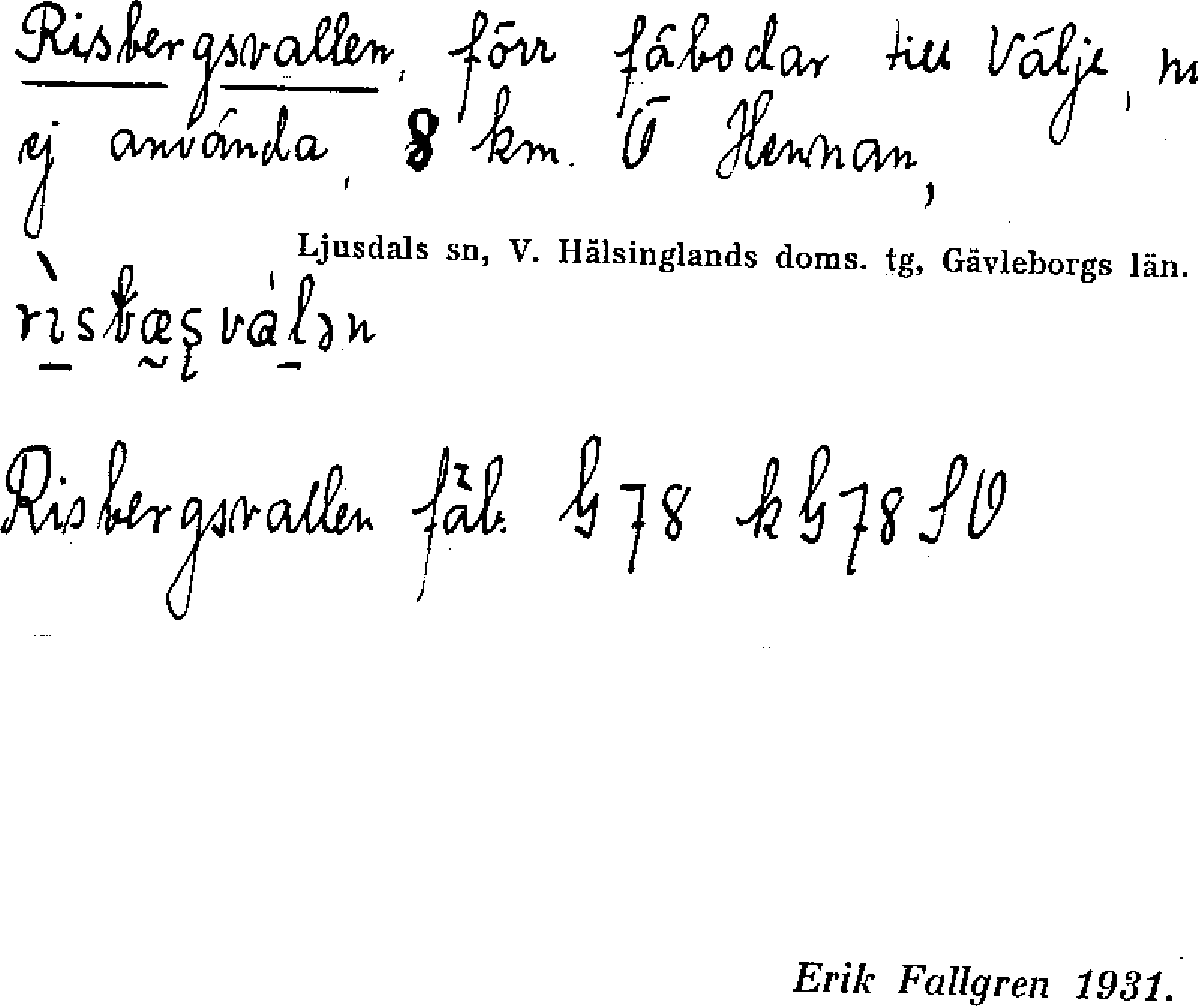 Risbergsvallen, förr fäbodar till Välje, nu
ej använda, 8 km. Ö Hennan,
Ljusdals sn, V. Hälsinglands doms. tg, Gävleborgs län.
rìsbæ̰ʂválən
Risbergsvallen fäb. G 78 k G 78 SV
Erik Fallgren 1931.